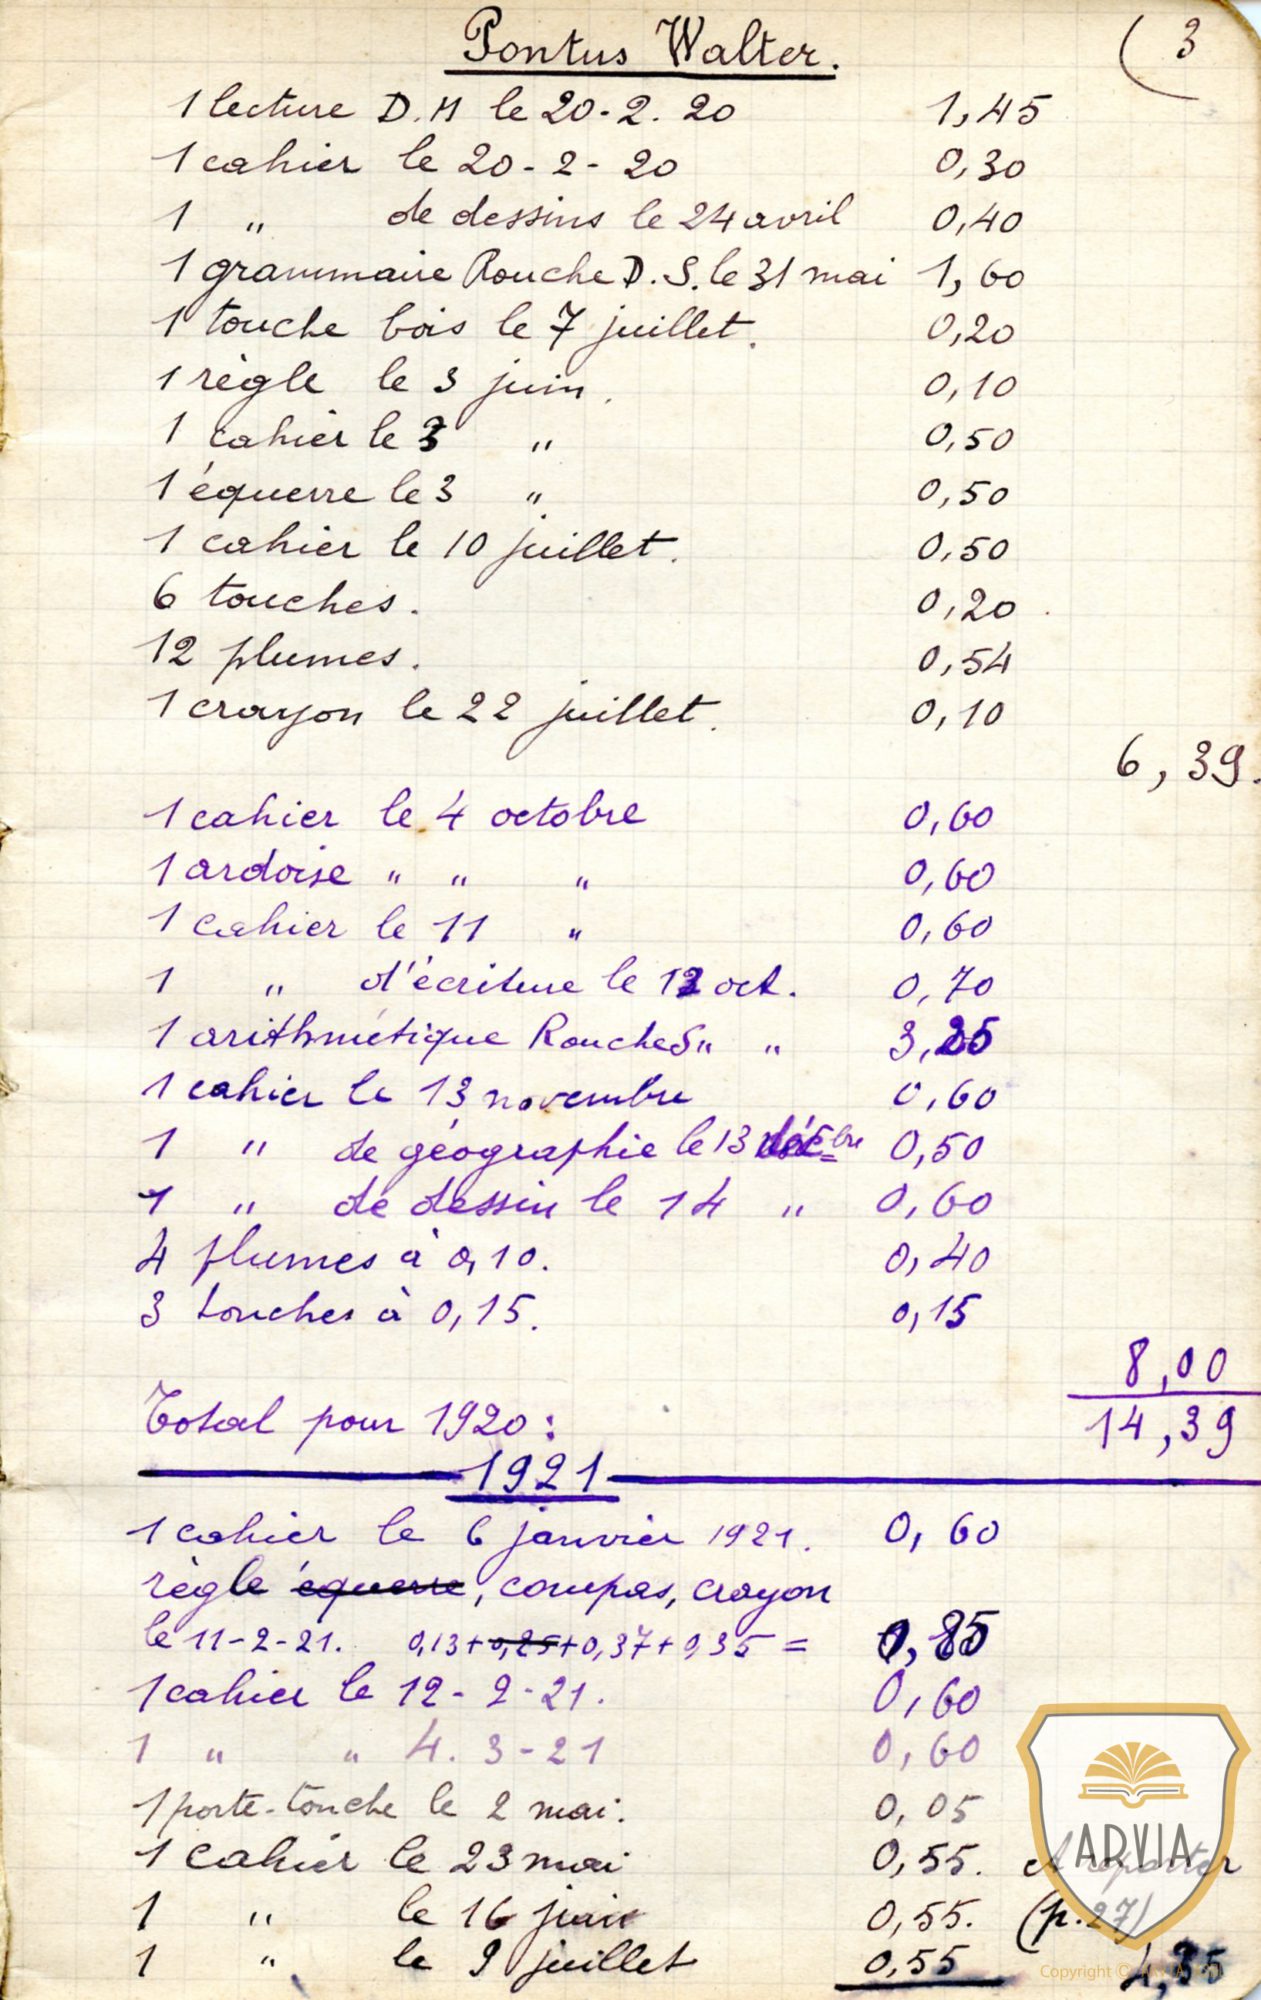 Pontus Walter.
( 3
1 lecture D.M le 20-2. 20 1,45
1 cahier le 20-2-20 0,30
1 " de dessins le 24 avril 0,40
1 grammaire Rouche D.S. le 31 mai 1,60
1 touche bois le 7 juillet. 0,20
1 règle le 3 juin. 0,10
1 cahier le 3 " 0,50
1 équerre le 3 " 0,50
1 cahier le 10 juillet. 0,50
6 touches. 0,20
12 plumes. 0,54
1 crayon le 22 juillet. 0,10
6,39.
1 cahier le 4 octobre 0,60
1 ardoise " " " 0,60
1 cahier le 11 " 0,60
1 " d'écriture le 12 oct. 0,70
1 arithmétique Rouche S " " 3,25
1 cahier le 13 novembre 0,60
1 " de géographie le 13 0,50
1 " de dessin le 14 " 0,60
4 plumes à 0,10. 0,40
3 touches à 0,15. 0,15
8,00
Total pour 1920: 14,39
1921
1 cahier le 6 janvier 1921. 0,60
règle équerre, compas, crayon
le 11-2-21. 0,13+0,25+0,37+0,35 = 0,85
1 cahier le 12-2-21. 0,60
1 " " 4. 3-21 0,60
1 porte-touche le 2 mai. 0,05
1 cahier le 23 mai 0,55. A reporter
1 " le 16 juin 0,55. (p.27)
1 " le 9 juillet 0,55 4,35
ARVIA
Copyright ©